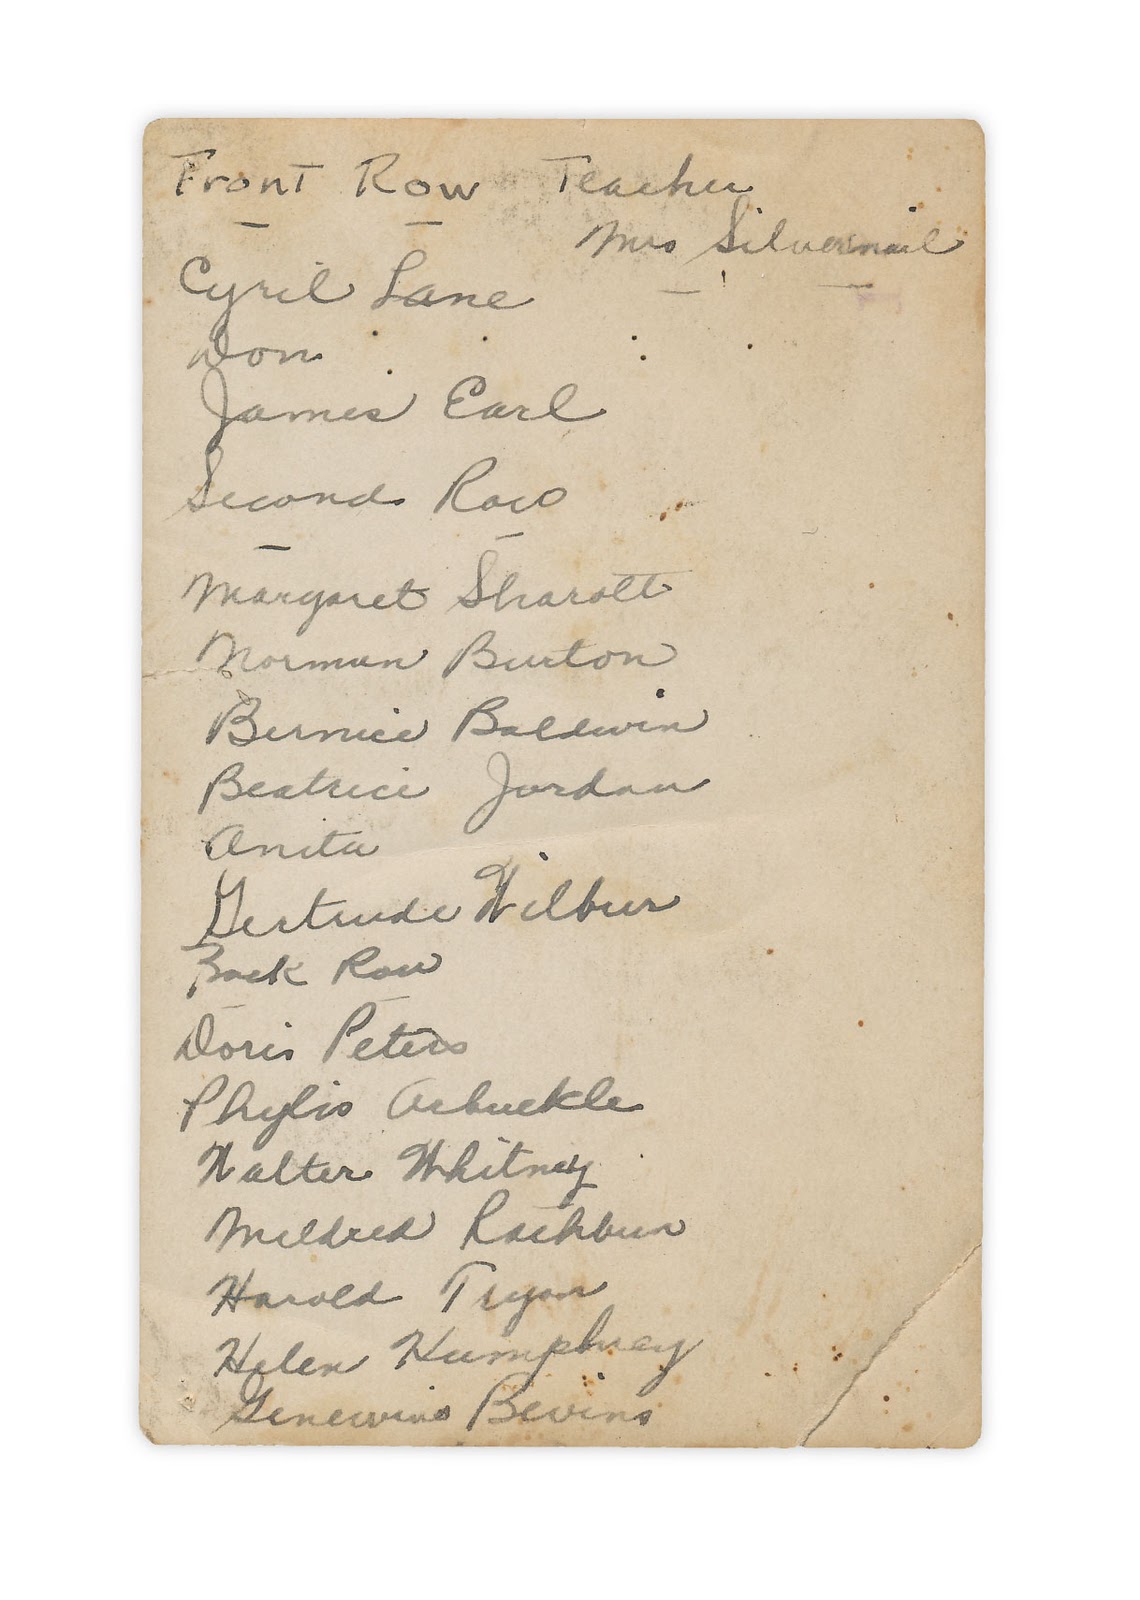 Front Row Teacher
Mrs Silvernail
Cyril Lane
Don
James Earl
Second Row
Margaret Sharott
Norman Burton
Bernice Baldwin
Beatrice Jordan
Anita
Gertrude Wilbur
Back Row
Doris Peters
Phylis Arbuckle
Walter Whitney
Mildred Rashbun
Harold Tryon
Helen Humphrey
Bevins